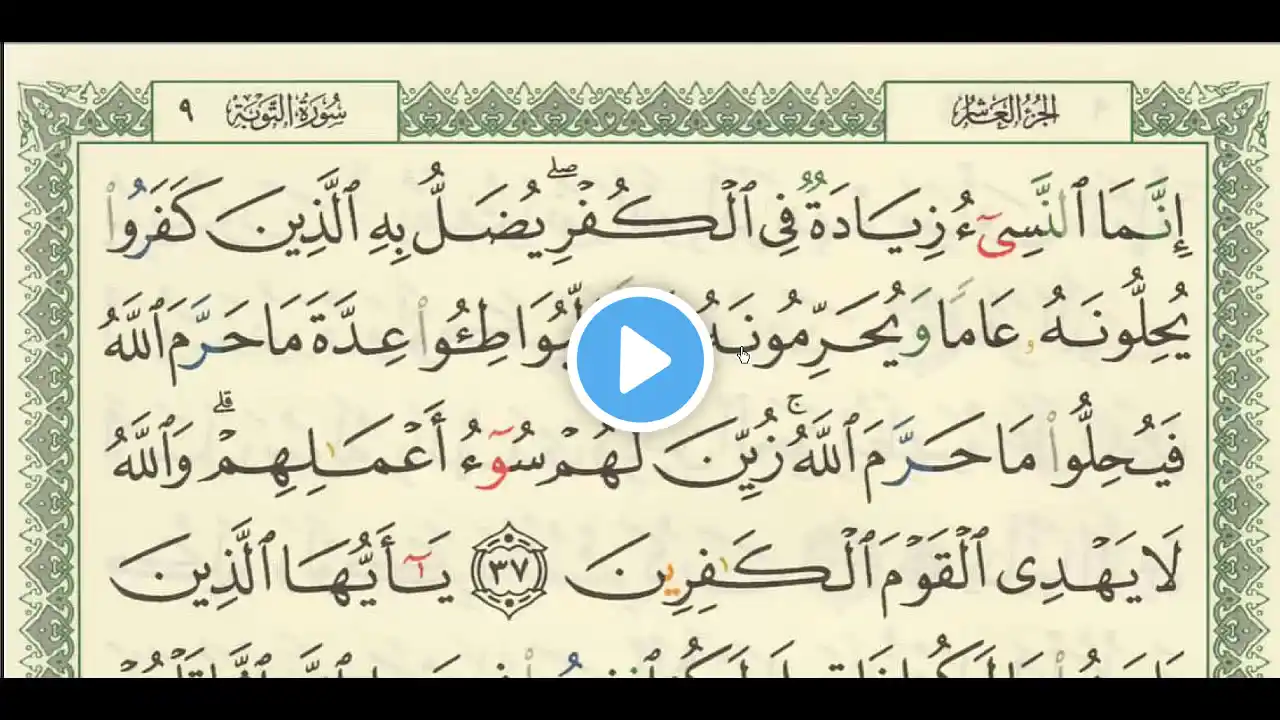 الجُزْءُ العَاشِرُ
سُورَةُ التَّوْبَةِ ٩
إِنَّمَا ٱلنَّسِىٓءُ زِيَادَةٌ فِى ٱلْكُفْرِ ۖ يُضَلُّ بِهِ ٱلَّذِينَ كَفَرُوا۟
يُحِلُّونَهُۥ عَامًا وَيُحَرِّمُونَهُ لِّيُوَاطِـُٔوا۟ عِدَّةَ مَا حَرَّمَ ٱللَّهُ
فَيُحِلُّوا۟ مَا حَرَّمَ ٱللَّهُ ۚ زُيِّنَ لَهُمْ سُوٓءُ أَعْمَـٰلِهِمْ ۗ وَٱللَّهُ
لَا يَهْدِى ٱلْقَوْمَ ٱلْكَـٰفِرِينَ ٣٧ يَـٰٓأَيُّهَا ٱلَّذِينَ